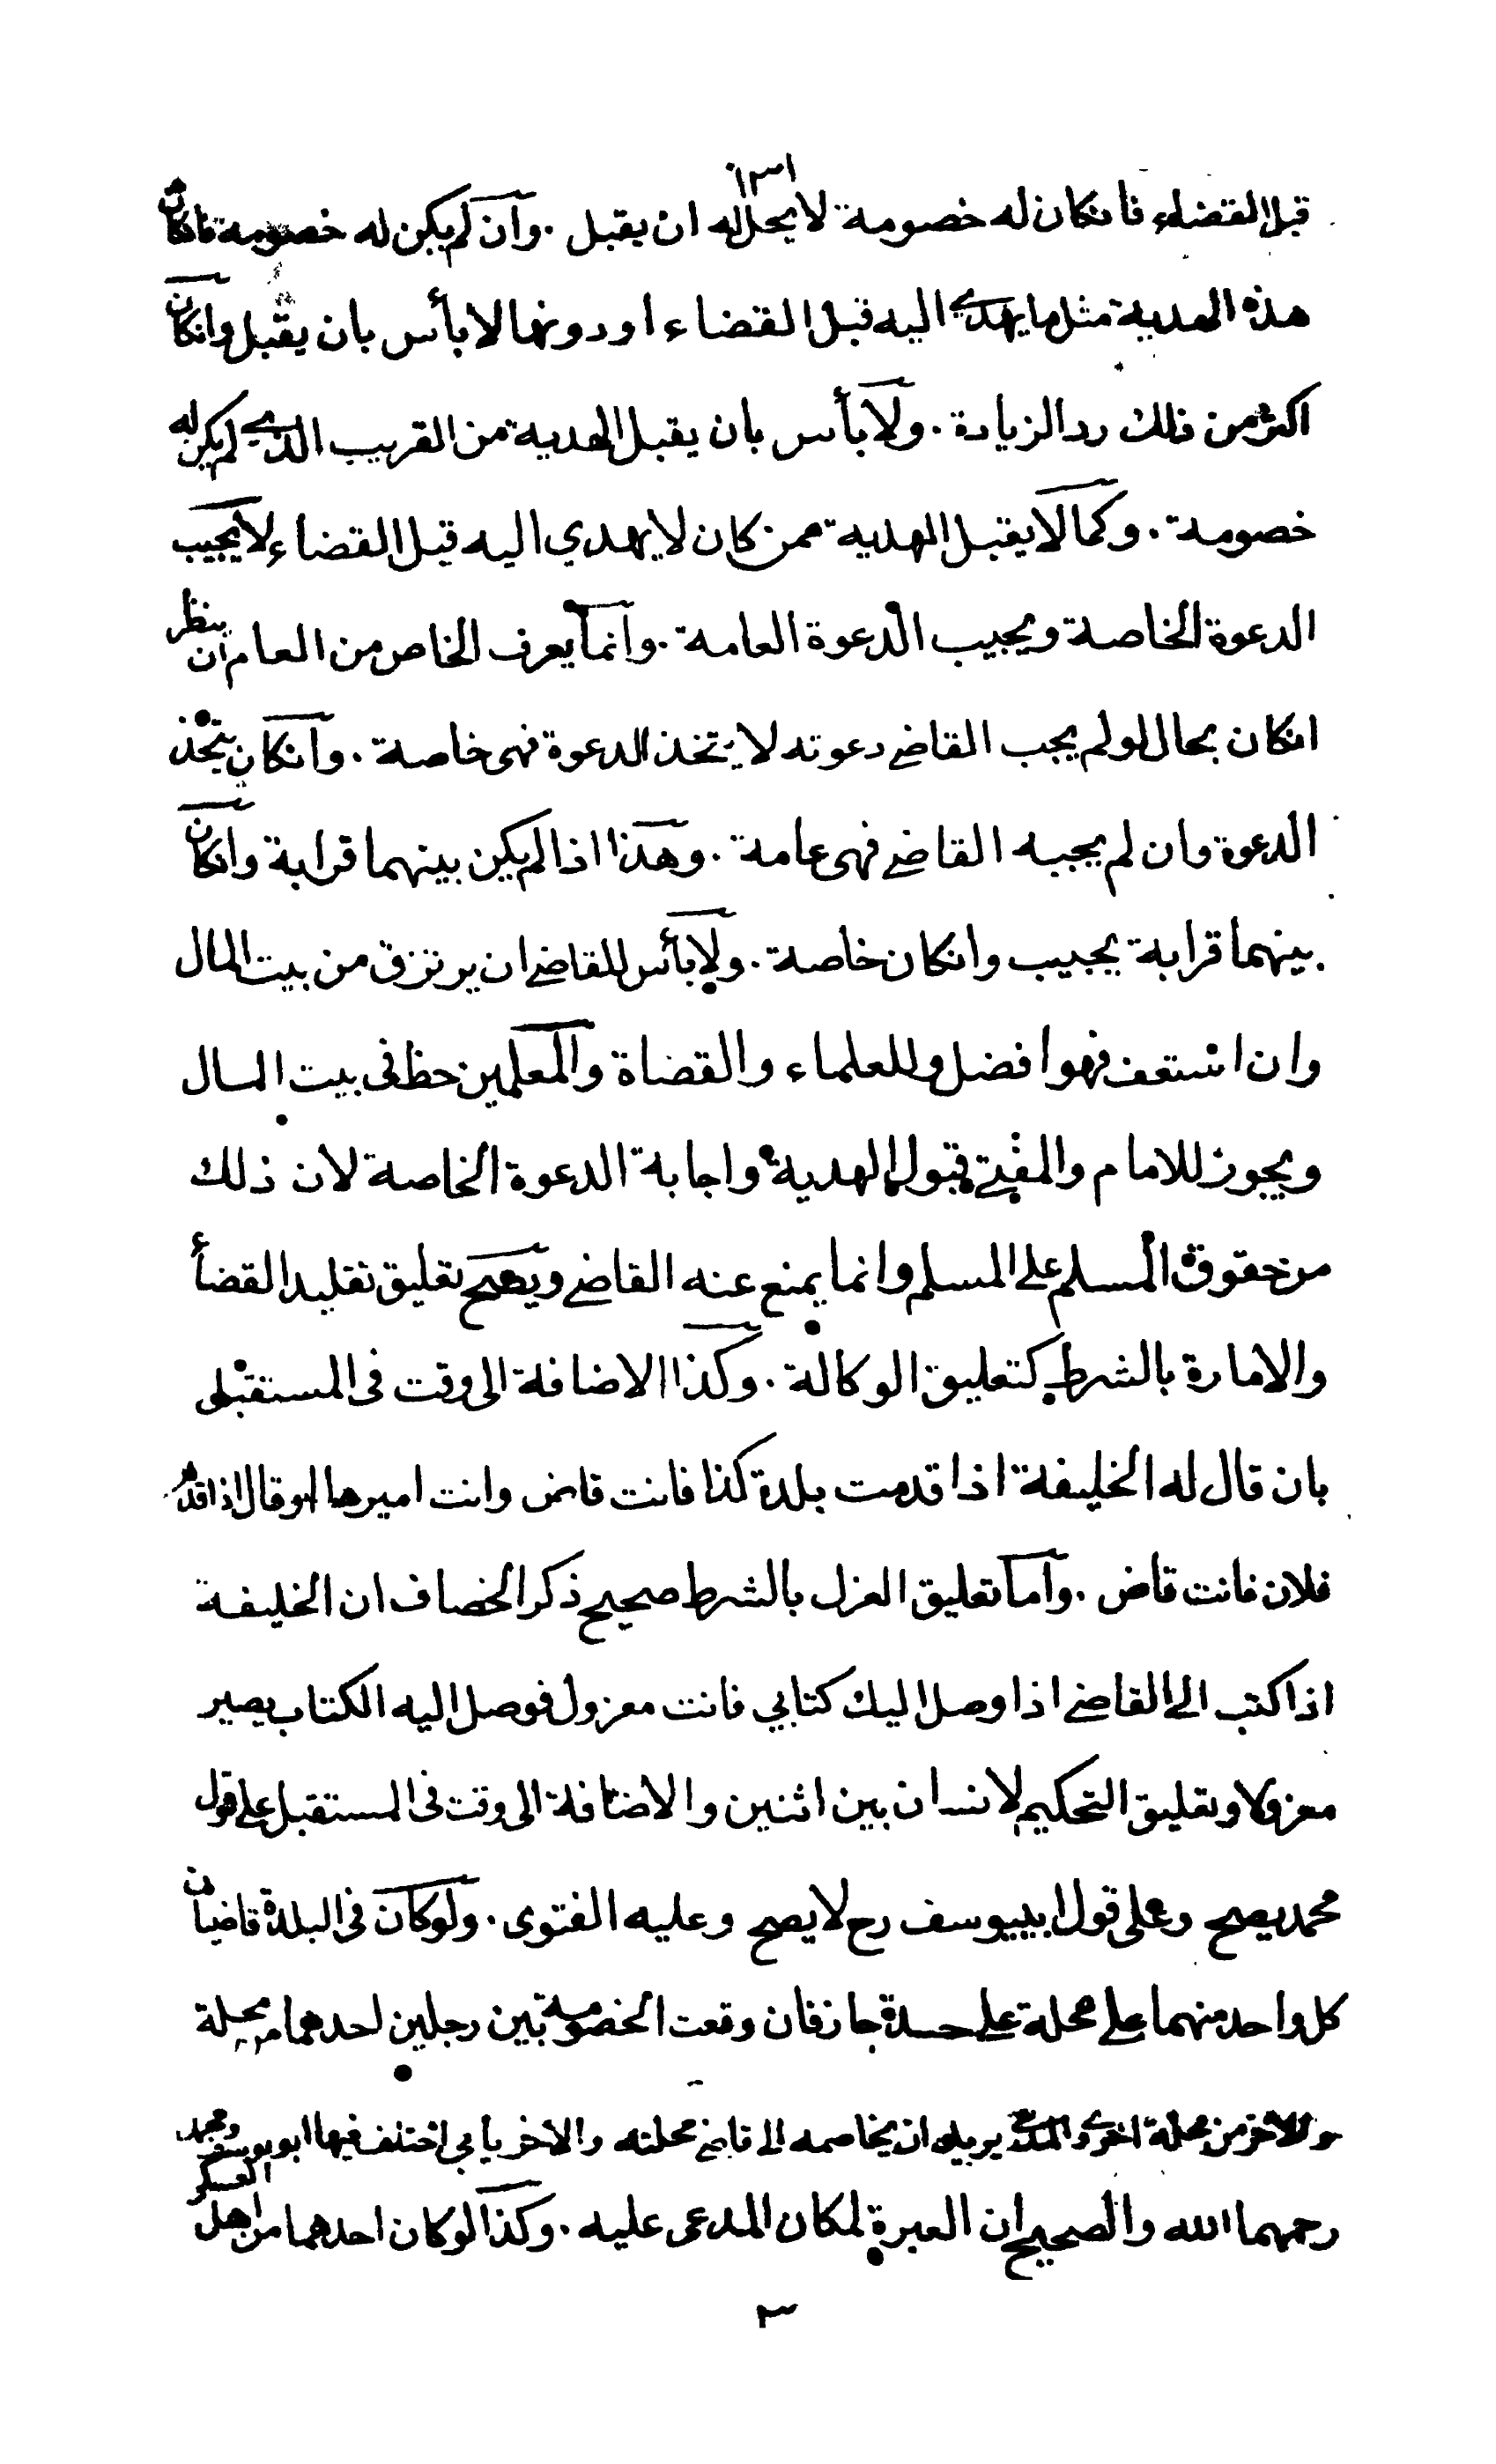 ١٣١
قبل القضاء فانكان له خصومة لا يحل له ان يقبل . وان لم يكن له خصومة فانكان
هذه الهدية مثل ما يهدى اليه قبل القضاء او دونها لا بأس بان يقبل وانكان
اكثر من ذلك رد الزيادة . ولا بأس بان يقبل الهدية من القريب الذي لم يكن له
خصومة . وكما لا يقبل الهدية ممن كان لا يهدي اليه قبل القضاء لا يجيب
الدعوة الخاصة ويجيب الدعوة العامة . وانما يعرف الخاص من العام ان ينظر
انكان بحال لو لم يجب القاضي دعوته لا يتخذ الدعوة فهى خاصة . وانكان يتخذ
الدعوة وان لم يجبه القاضي فهى عامة . وهذا اذا لم يكن بينهما قرابة وانكان
بينهما قرابة يجيب وانكان خاصة . ولا بأس للقاضي ان يرتزق من بيت المال
وان استعف فهو افضل وللعلماء والقضاة والمعلمين حظ فى بيت المال
ويجوز للامام والمفتي قبول الهدية واجابة الدعوة الخاصة لان ذلك
من حقوق المسلم على المسلم وانما يمنع عنه القاضي ويصح تعليق تقليد القضأ
والامارة بالشرط كتعليق الوكالة . وكذا الاضافة الى وقت فى المستقبل
بان قال له الخليفة اذا قدمت بلدة كذا فانت قاض وانت اميرها او قال اذا قدم
فلان فانت قاض . واما تعليق العزل بالشرط صحيح ذكر الخصاف ان الخليفة
اذا كتب الى القاضي اذا وصل اليك كتابي فانت معزول فوصل اليه الكتاب يصير
معزولا وتعليق التحكيم لانسان بين اثنين والاضافة الى وقت فى المستقبل على قول
محمد يصح وعلى قول ابييوسف رح لا يصح وعليه الفتوى . ولو كان فى البلدة قاضيان
كل واحد منهما على محلة على حدة جاز فان وقعت الخصومة بين رجلين احدهما من محلة
والاخر من محلة اخرى والمدعي يريد ان يخاصمه الى قاضي محلته والاخر يابى اختلف فيها ابو يوسف ومحمد
رحمهما الله والصحيح ان العبرة لمكان المدعى عليه . وكذا لو كان احدهما من اهل العسكر
٣